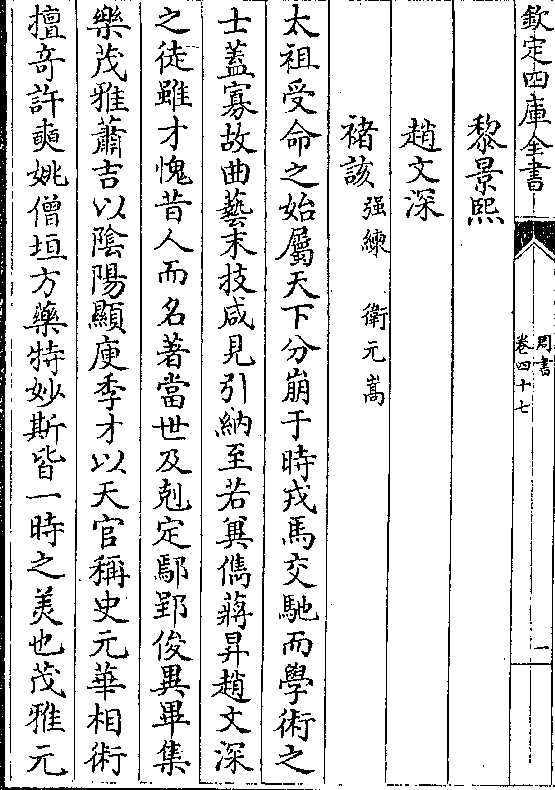 欽定四庫全書
周書
卷四十七
一
黎景熙
趙文深
褚該 强練 衛元嵩
太祖受命之始屬天下分崩于時戎馬交馳而學術之
士蓋寡故曲藝末技咸見引納至若兾儁蔣昇趙文深
之徒雖才愧昔人而名著當世及剋定鄢郢俊異畢集
樂茂雅蕭吉以陰陽顯庾季才以天官稱史元華相術
擅奇許奭姚僧垣方藥特妙斯皆一時之美也茂雅元